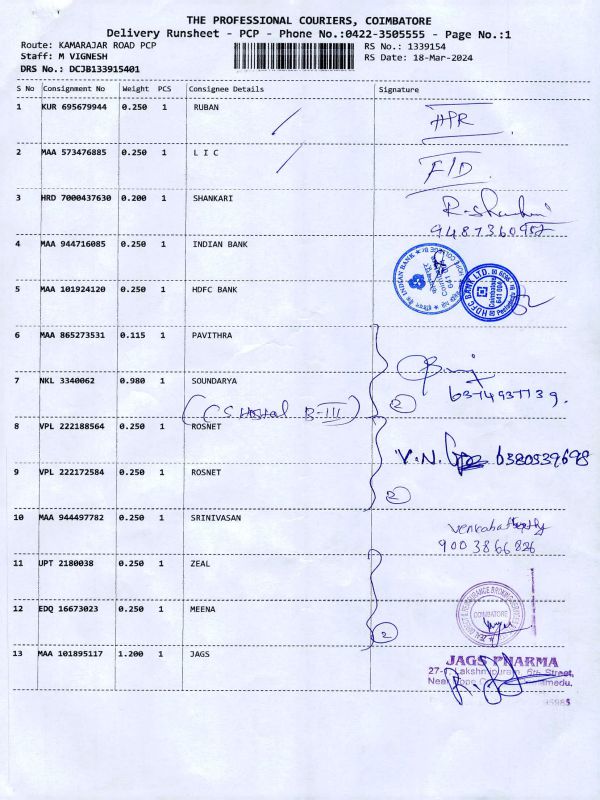 THE PROFESSIONAL COURIERS, COIMBATORE
Delivery Runsheet - PCP - Phone No.:0422-3505555 - Page No.:1
Route: KAMARAJAR ROAD PCP
RS No.: 1339154
Staff: M VIGNESH
RS Date: 18-Mar-2024
DRS No.: DCJB133915401
S No Consignment No Weight PCS Consignee Details Signature
1 KUR 695679944 0.250 1 RUBAN
2 MAA 573476885 0.250 1 L I C F/D
3 HRD 7000437630 0.200 1 SHANKARI
4 MAA 944716085 0.250 1 INDIAN BANK
INDIAN BANK
5 MAA 101924120 0.250 1 HDFC BANK
HDFC BANK LTD.
6 MAA 865273531 0.115 1 PAVITHRA
7 NKL 3340062 0.980 1 SOUNDARYA
2 6374937739.
(C.S. Hostal B-III)
8 VPL 222188564 0.250 1 ROSNET
V.N. 6380539698
9 VPL 222172584 0.250 1 ROSNET
2
10 MAA 944497782 0.250 1 SRINIVASAN
9003866826
11 UPT 2180038 0.250 1 ZEAL
12 EDQ 16673023 0.250 1 MEENA
COIMBATORE
2
13 MAA 101895117 1.200 1 JAGS
JAGS PHARMA
Lakshmipuram, 6th Street,